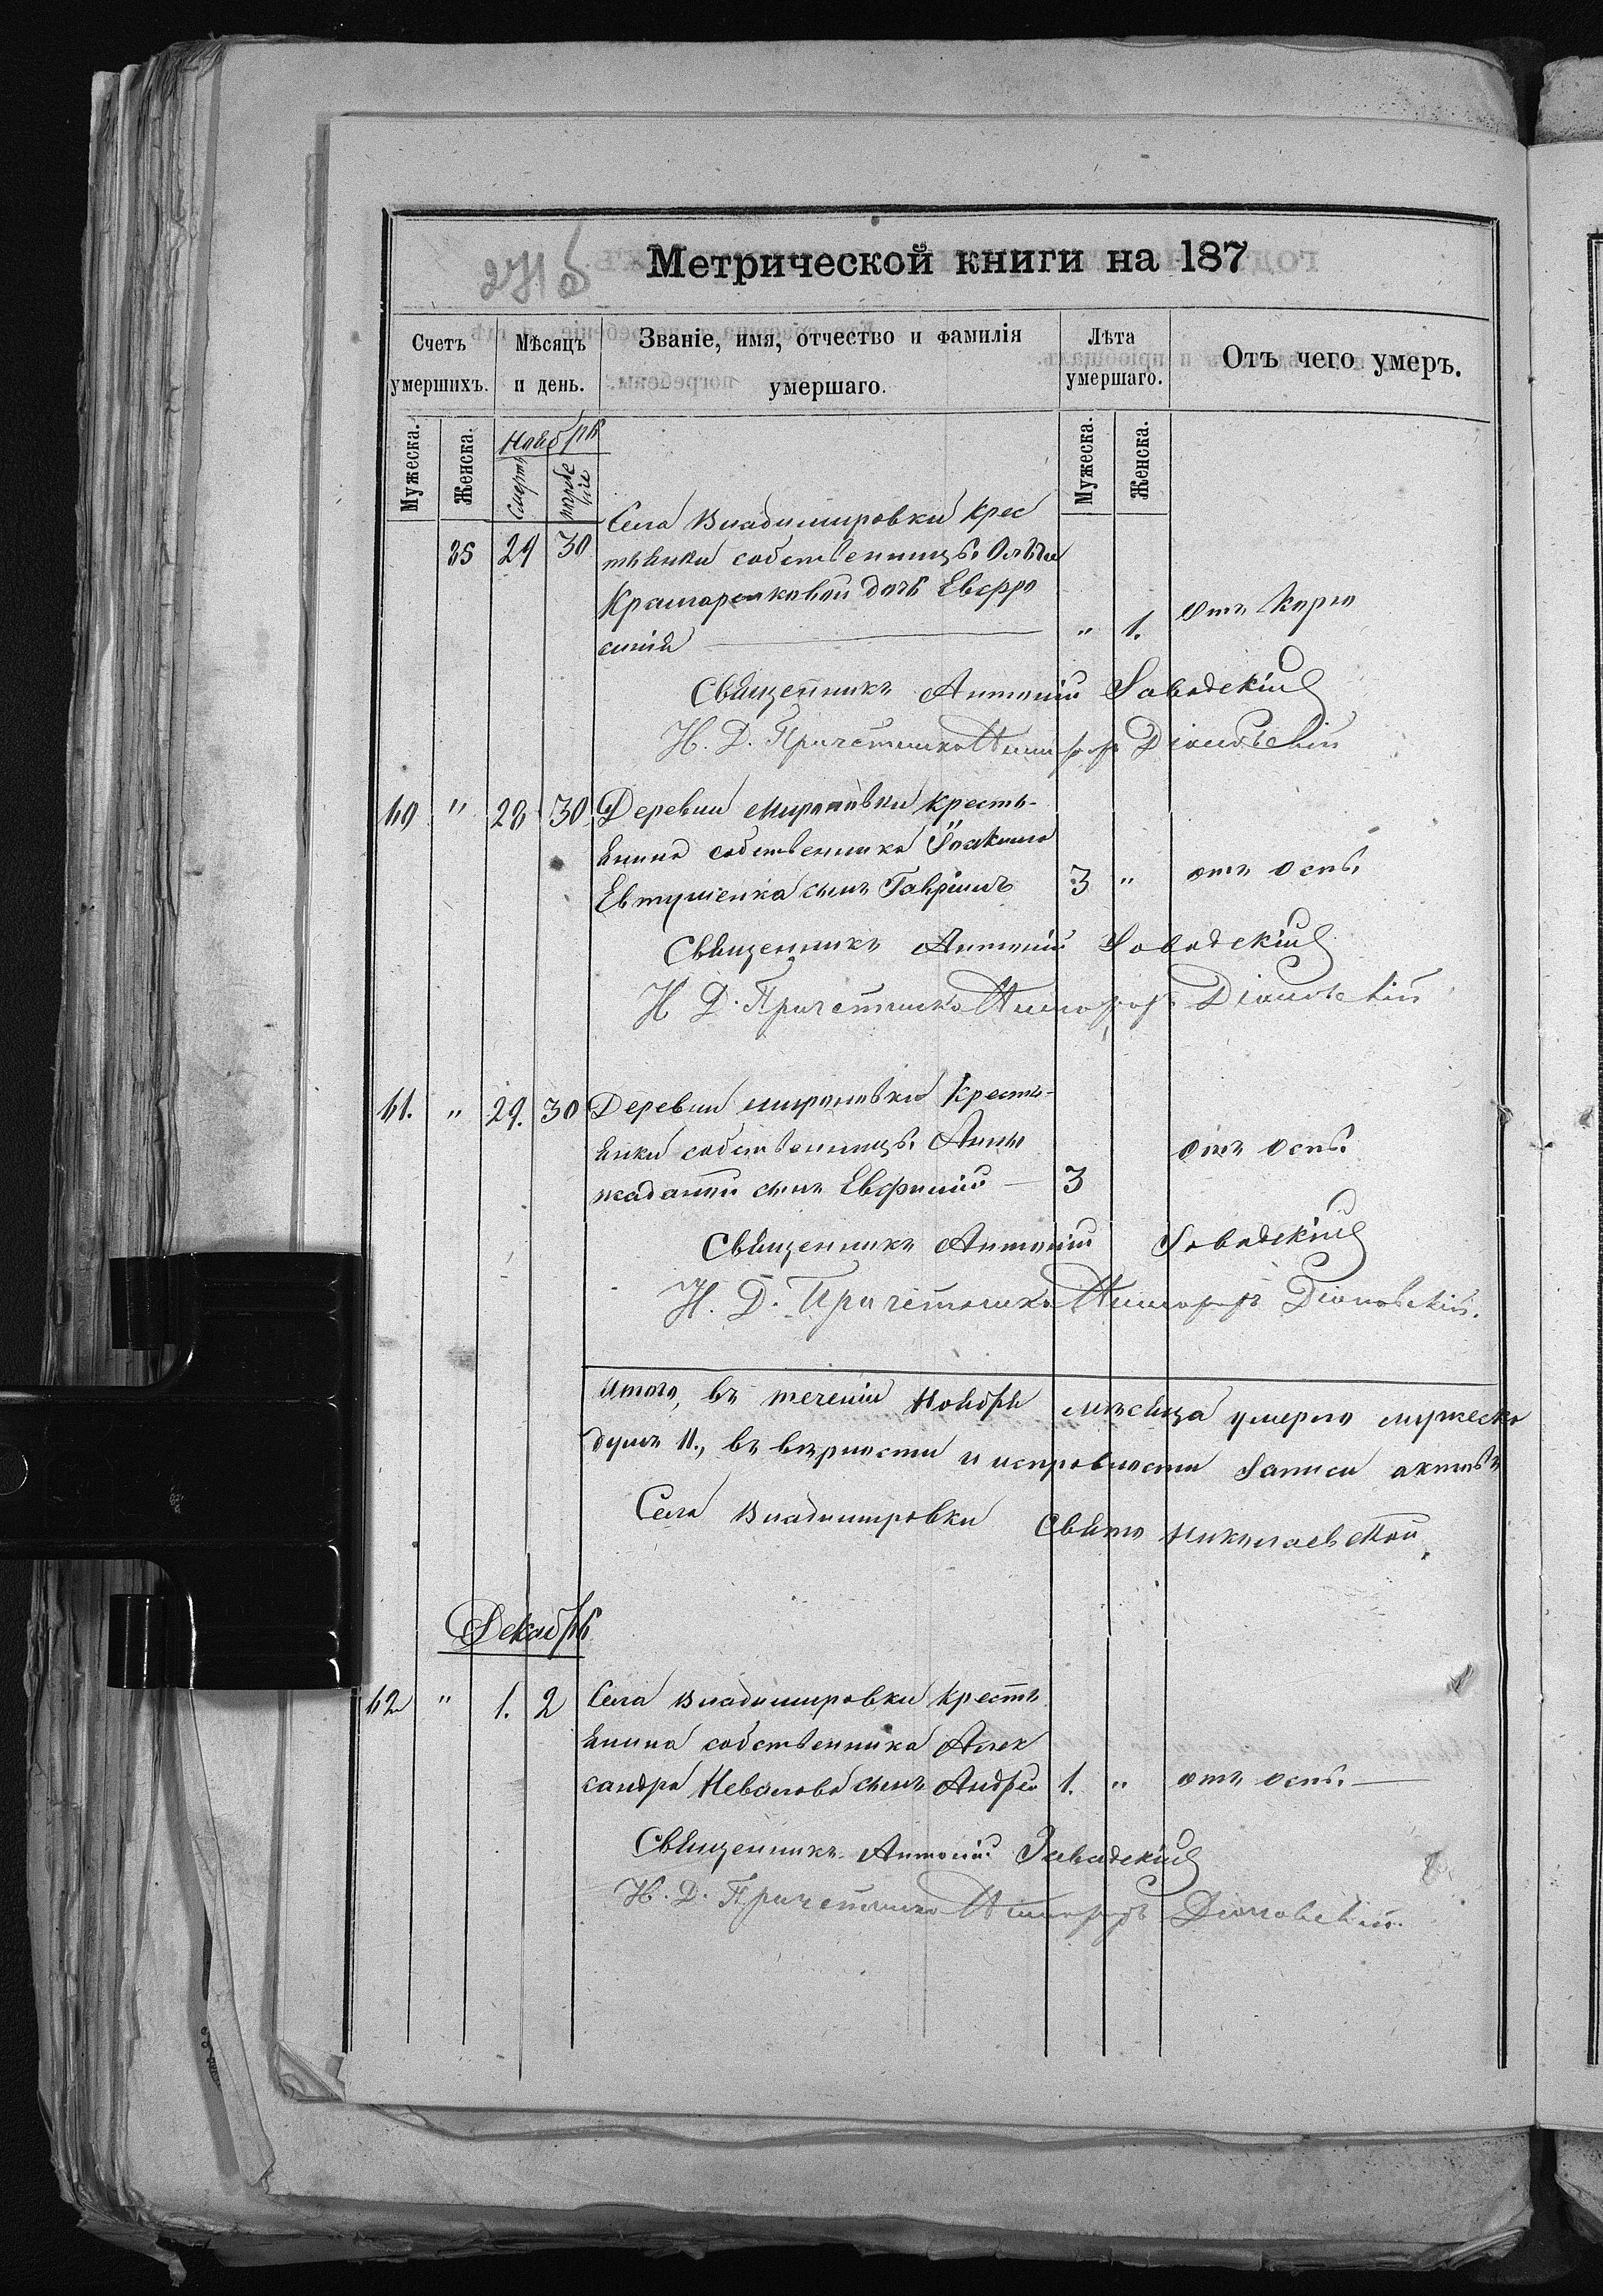 271 б
Метрической книги на 187
Счетъ умершихъ.
Мѣсяцъ и день.
Званіе, имя, отчество и фамилія умершаго.
Лѣта умершаго.
Отъ чего умеръ.
Мужеска.
Женска.
Ноябрь
Смерть
погребеніе
Мужеска.
Женска.
Села Владимировки крес
35 29 30 тьянки собственницы Ольги
Крамаренковой дочь Евфро
синія " 1. отъ кори
Священникъ Антоній Завадскій
И. Д. Причетника
40 " 28 30 Деревни Мироновки кресть-
янина собственника Іоакима
Евтушенка сынъ Гавріилъ 3 " отъ оспы
Священникъ Антоній Завадскій
И. Д. Причетника
41. " 29. 30 Деревни Мироновки кресть-
янки собственницы Анны
сынъ Евфимій 3 отъ оспы
Священникъ Антоній Завадскій
И. Д. Причетника
Итого, въ теченіи Ноября мѣсяца умерло мужеска
душъ 11., въ вѣрности и исправности записи актовъ
Села Владимировки Свято Николаевской,
Декабрь
42 " 1. 2 Села Владимировки кресть
янина собственника Алек
сандра сынъ Андрей 1. " отъ оспы.
Священникъ Антоній Завадскій
И. Д. Причетника